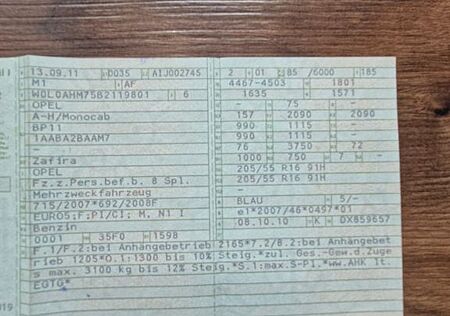 13.09.11 0035 AIJ002745
M1 AF
W0L0AHM75B2119801 6
OPEL
A-H/Monocab
BP11
1AABA2BAAM7
-
Zafira
OPEL
Fz.z.Pers.bef.b. 8 Spl.
Mehrzweckfahrzeug
715/2007*692/2008F
EURO5;F;PI/CI; M, N1 I
Benzin
0001 35F0 1598
2 01 85 /6000 185
4467-4503 1801
1635 1571
- 75 -
157 2090 2090
990 1115 -
990 1115 -
76 3750 72
1000 750 7 -
205/55 R16 91H
205/55 R16 91H
-
BLAU 5/-
e1*2007/46*0497*01
08.10.10 K DX859657
F.1/F.2:bei Anhängebetrieb 2165*7.2/8.2:bei Anhängebet
rieb 1205*O.1:1300 bis 10% Steig.*zul. Ges.-Gew.d.Zuge
s max. 3100 kg bis 12% Steig.*S.1:max.S-Pl.*ww.AHK lt.
EGTG*